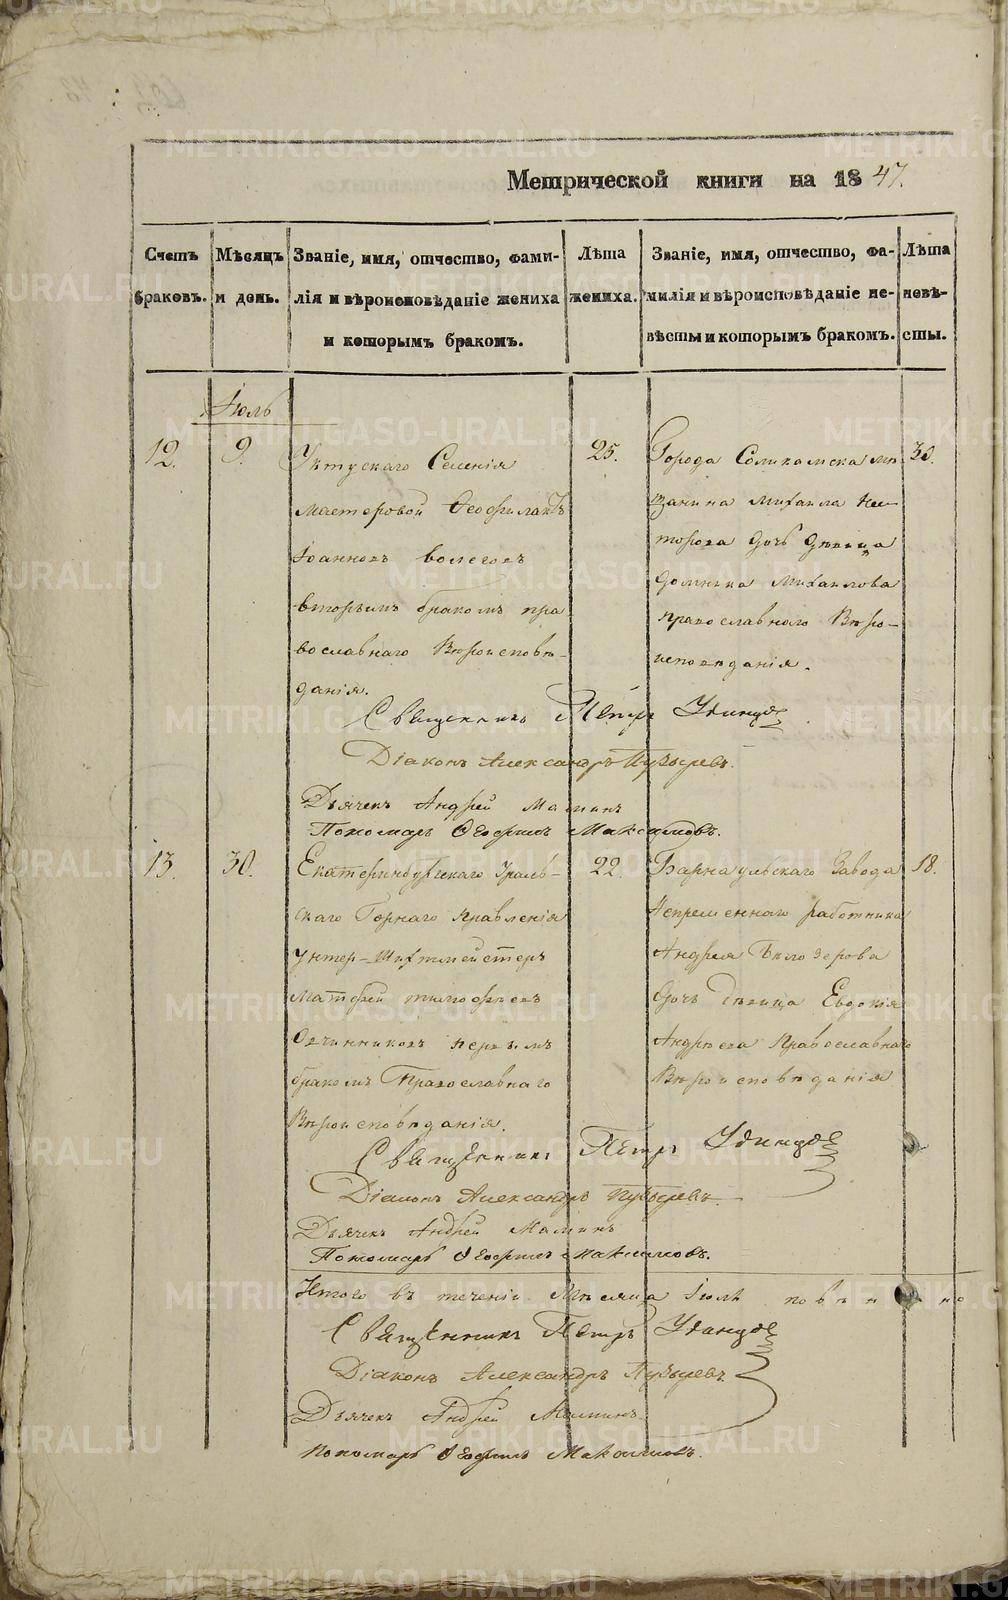 Метрической книги на 1847.
Счетъ браковъ.
Мѣсяцъ и день.
Званіе, имя, отчество, фами-
лія и вѣроисповѣданіе жениха
и которымъ бракомъ.
Лѣта
жениха.
Званіе, имя, отчество, фа-
милія и вѣроисповѣданіе не-
вѣсты и которымъ бракомъ.
Лѣта
невѣ-
сты.
Іюль
12.
9.
Уктускаго Селенія
мастеровой Ѳеофилактъ
Іоанновъ
вторымъ бракомъ пра
вославнаго Вѣроисповѣ-
данія.
25.
Города Соликамска мѣ
щанина Михаила
дочь дѣвица
Домника Михаилова
православнаго Вѣро-
исповѣданія.
30.
Священникъ Петръ Удинцовъ
Діаконъ Александръ Пузыревъ.
Дьячекъ Андрей Маминъ
Пономарь Ѳеофилъ Максимовъ.
13.
30.
Екатеринбургскаго Ураль-
скаго Горнаго Правленія
Унтер-Шихтмейстеръ
Матѳей Тимоѳеевъ
Овчинниковъ первымъ
бракомъ Православнаго
Вѣроисповѣданія.
22.
Барнаульскаго Завода
Непременнаго работника
Андрея Бѣлозерова
дочь дѣвица Евдокія
Андрѣева Православнаго
Вѣроисповѣданія
18.
Священникъ Петръ Удинцовъ
Діаконъ Александръ Пузыревъ
Дьячекъ Андрей Маминъ
Пономарь Ѳеофилъ Максимовъ.
Итого въ теченіи Мѣсяца Іюля повѣнчано
Священникъ Петръ Удинцовъ
Діаконъ Александръ Пузыревъ
Дьячекъ Андрей Маминъ
Пономарь Ѳеофилъ Максимовъ.
METRIKI.GASO-URAL.RU